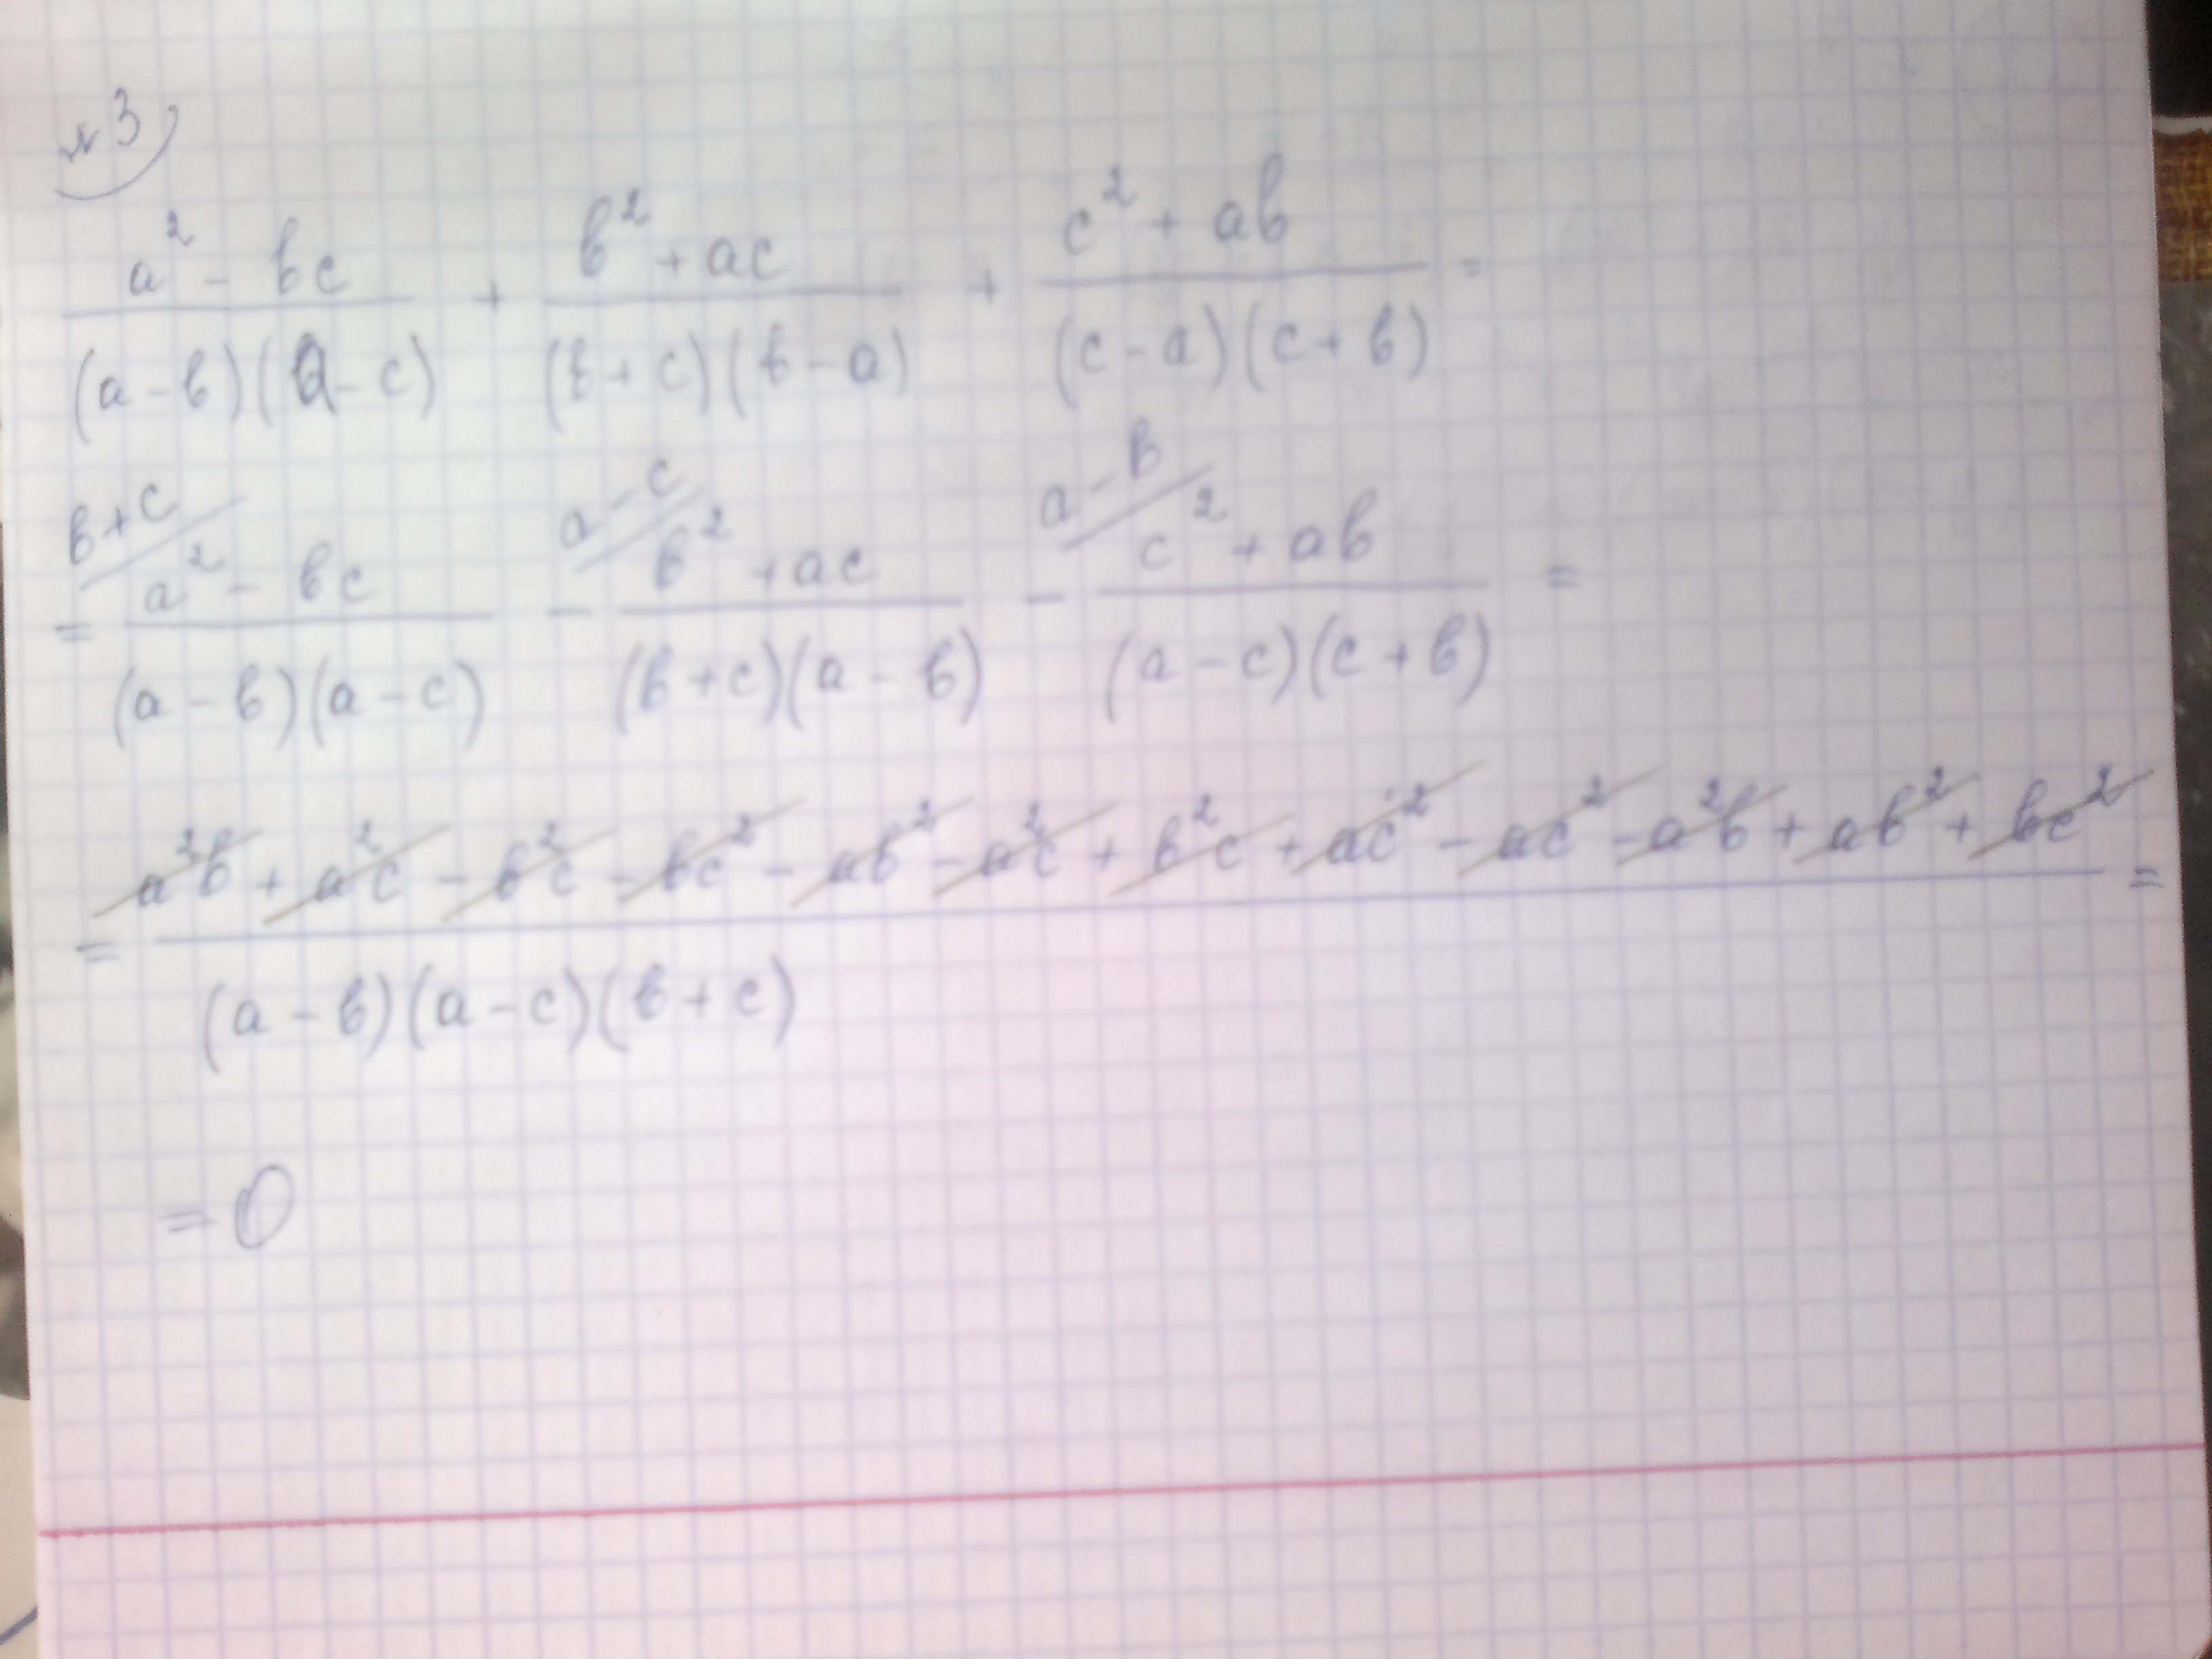 №3)
a² - bc / (a-b)(a-c) + b² + ac / (b+c)(b-a) + c² + ab / (c-a)(c+b) =
= b+c/ a² - bc / (a-b)(a-c) - a-c/ b² + ac / (b+c)(a-b) - a-b/ c² + ab / (a-c)(c+b) =
= a²b + a²c - b²c - bc² - ab² - a²c + b²c + ac² - ac² - a²b + ab² + bc² / (a-b)(a-c)(b+c) =
= 0